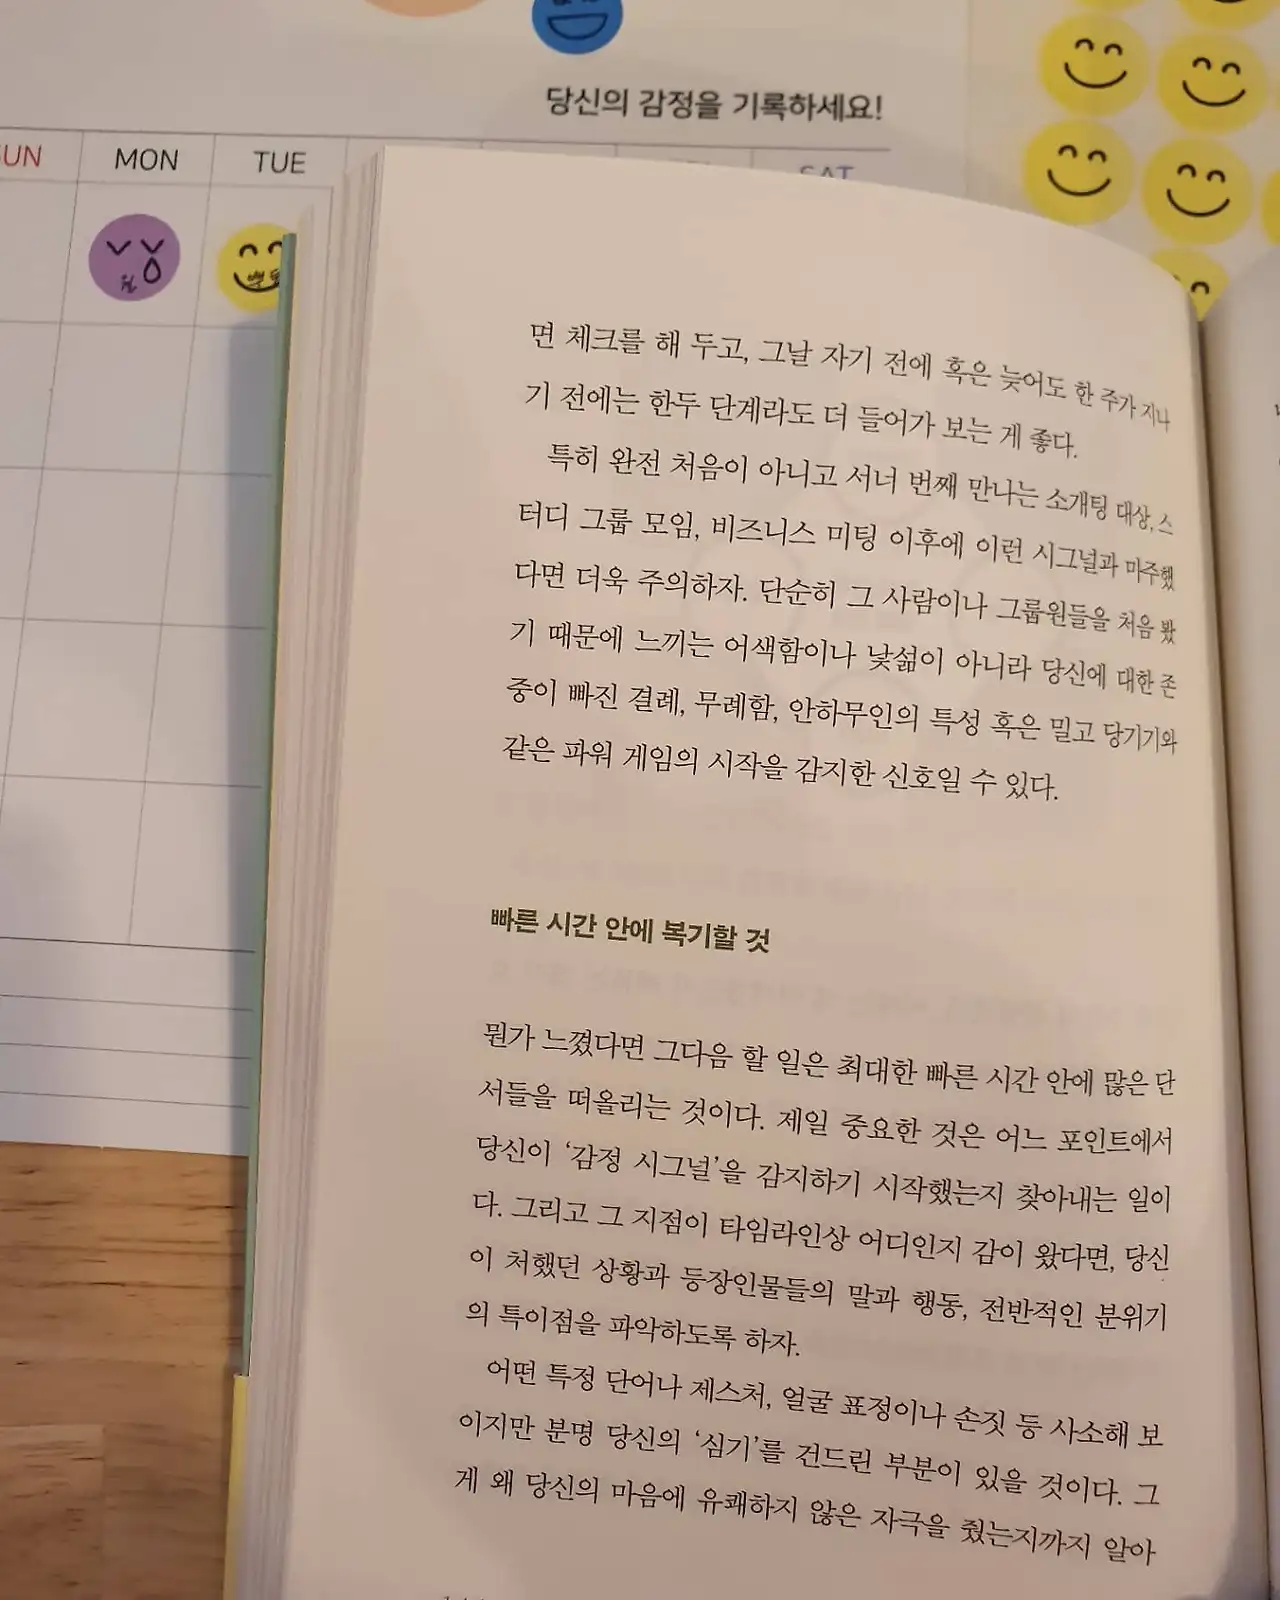 당신의 감정을 기록하세요!
SUN MON TUE SAT
월
면 체크를 해 두고, 그날 자기 전에 혹은 늦어도 한 주가 지나
기 전에는 한두 단계라도 더 들어가 보는 게 좋다.
특히 완전 처음이 아니고 서너 번째 만나는 소개팅 대상, 스
터디 그룹 모임, 비즈니스 미팅 이후에 이런 시그널과 마주했
다면 더욱 주의하자. 단순히 그 사람이나 그룹원들을 처음 봤
기 때문에 느끼는 어색함이나 낯섦이 아니라 당신에 대한 존
중이 빠진 결례, 무례함, 안하무인의 특성 혹은 밀고 당기기와
같은 파워 게임의 시작을 감지한 신호일 수 있다.
빠른 시간 안에 복기할 것
뭔가 느꼈다면 그다음 할 일은 최대한 빠른 시간 안에 많은 단
서들을 떠올리는 것이다. 제일 중요한 것은 어느 포인트에서
당신이 ‘감정 시그널’을 감지하기 시작했는지 찾아내는 일이
다. 그리고 그 지점이 타임라인상 어디인지 감이 왔다면, 당신
이 처했던 상황과 등장인물들의 말과 행동, 전반적인 분위기
의 특이점을 파악하도록 하자.
어떤 특정 단어나 제스처, 얼굴 표정이나 손짓 등 사소해 보
이지만 분명 당신의 ‘심기’를 건드린 부분이 있을 것이다. 그
게 왜 당신의 마음에 유쾌하지 않은 자극을 줬는지까지 알아